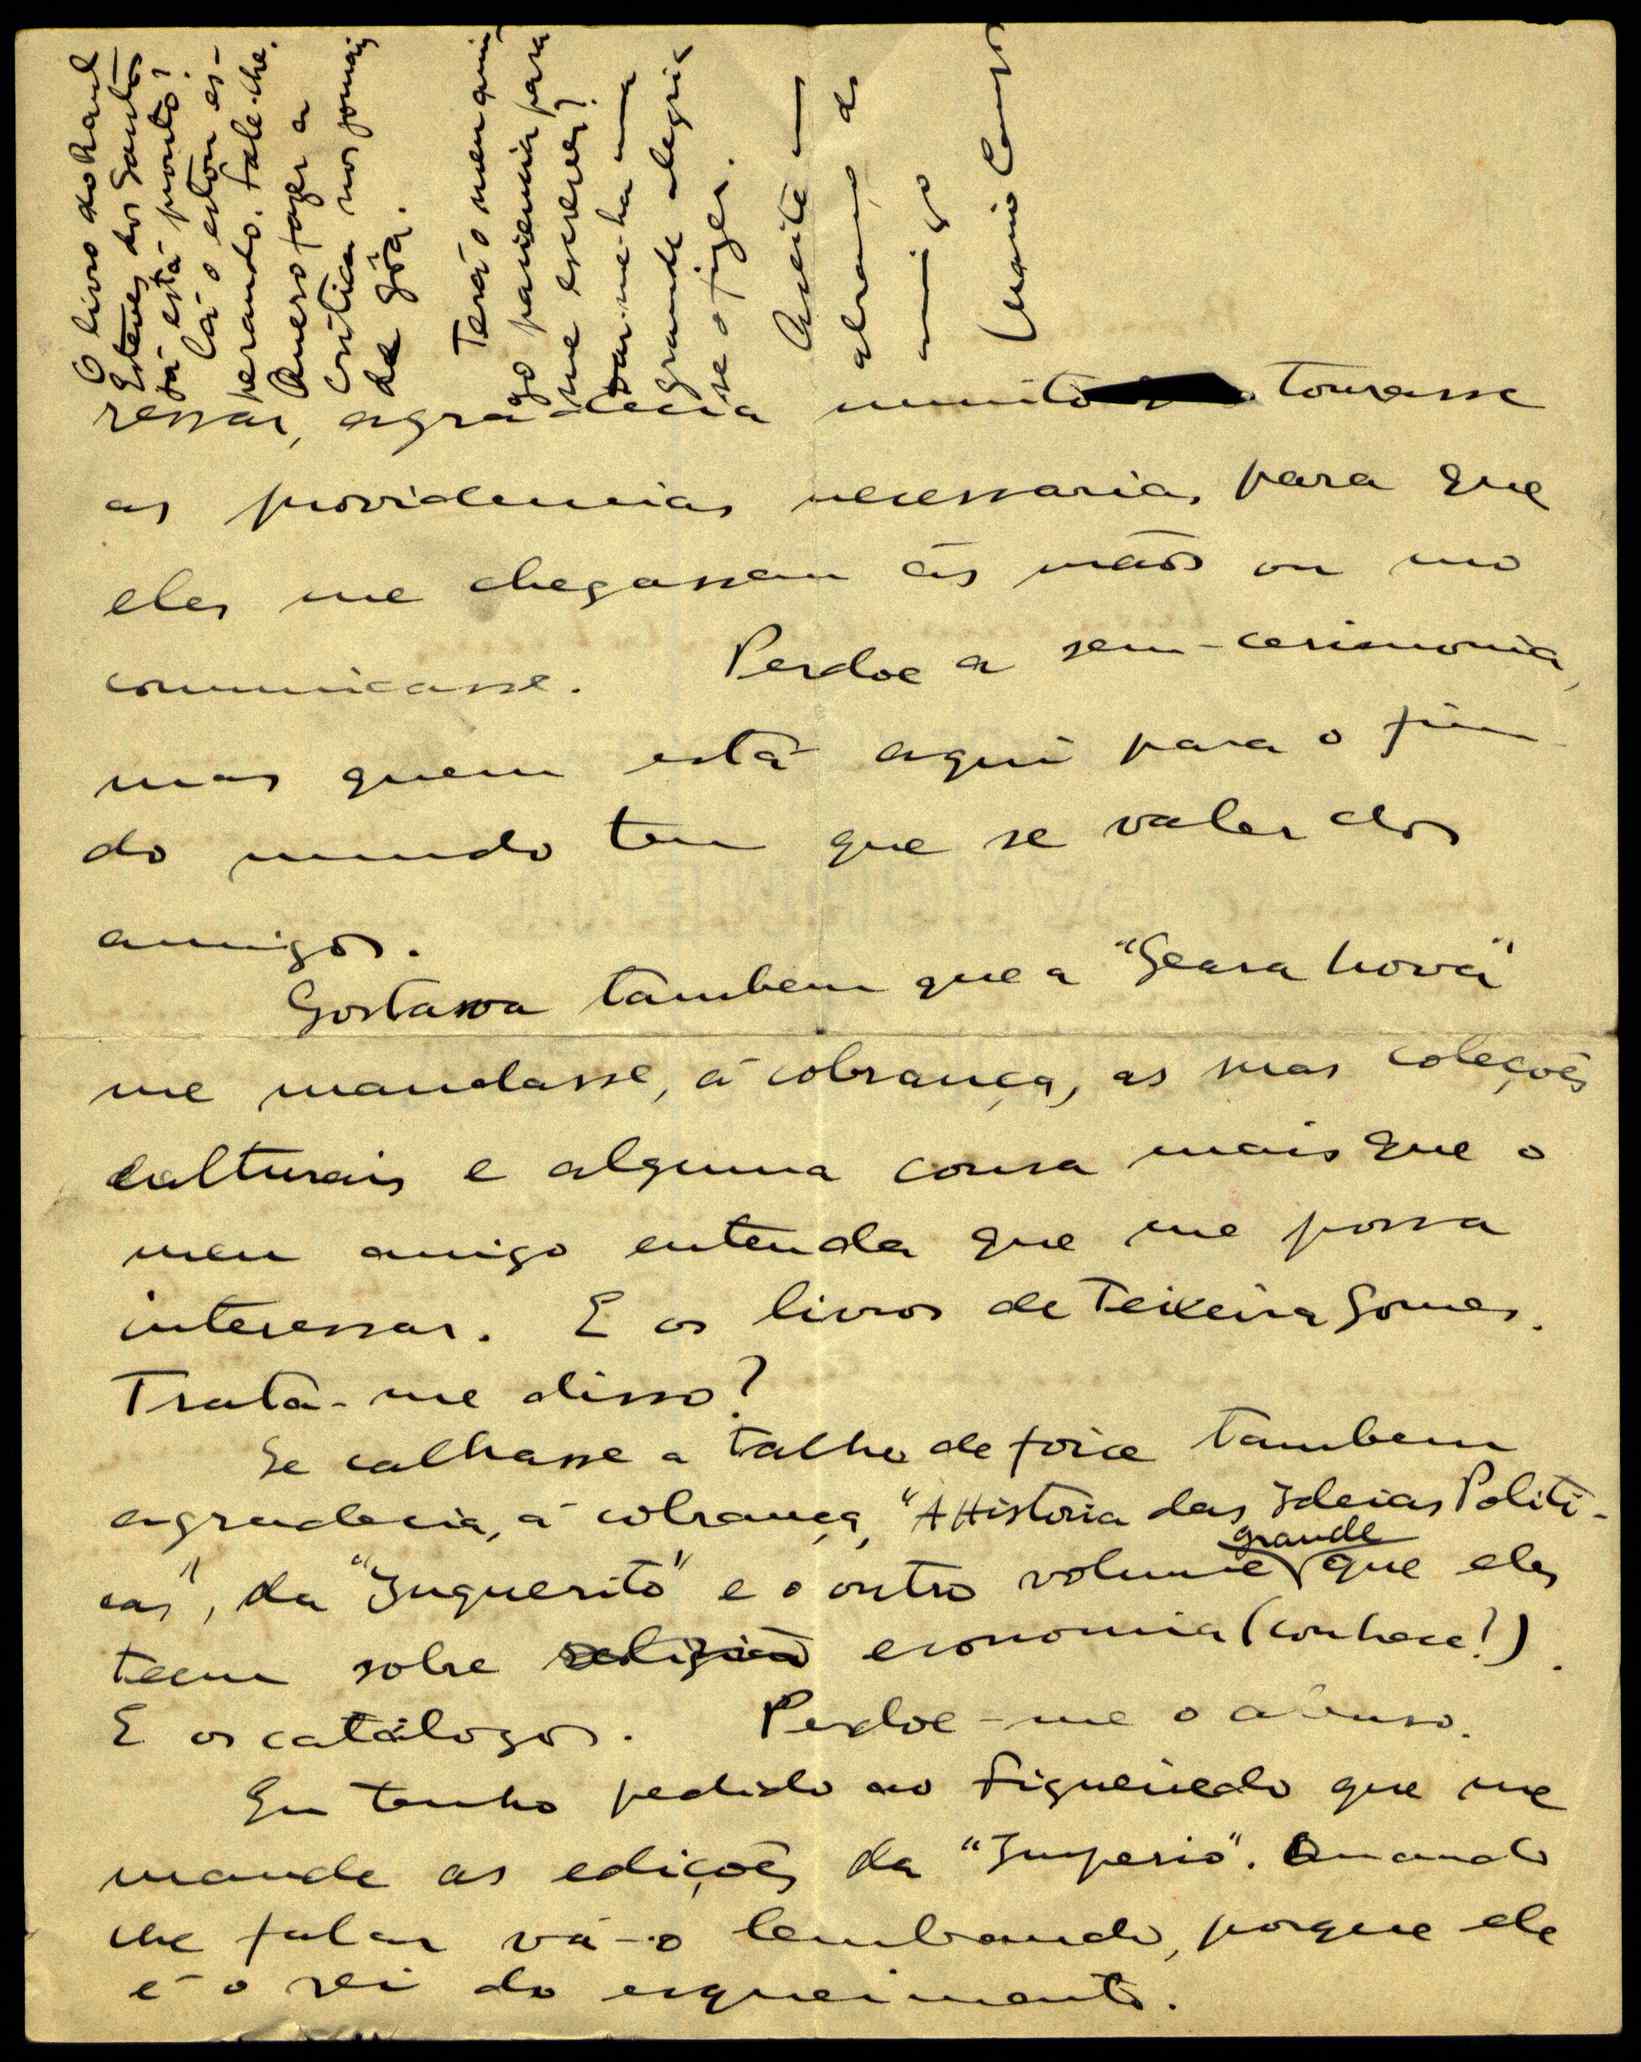 ressar, agradecia muito tomasse
as providencias necessarias para que
eles me chegassem ás mãos ou mo
comunicasse. Perdoe a sem-cerimonia,
mas quem está aqui para o fim
do mundo tem que se valer dos
amigos.
Gostava tambem que a "Seara Nova"
me mandasse, á cobrança, as suas coleções
culturais e alguma cousa mais que o
meu amigo entenda que me possa
interessar. E os livros de Teixeira Gomes.
Trata-me disso?
Se calhasse a talho de foice tambem
agradecia, á cobrança, "A Historia das Ideias Politi-
cas", da "Inquerito" e o outro volume grande que eles
teem sobre religião economia (conhece?).
E os catálogos. Perdoe-me o abuso.
Eu tenho pedido ao Figueiredo que me
mande as edições da "Imperio". Quando
lhe falar vá-o lembrando, porque ele
é o rei do esquecimento.
O livro do Raul
Esteves dos Santos
já está pronto?
Cá o estou es-
perando. Fale-lhe.
Quero fazer a
critica nos jornais
de Gôa.
Terá o meu ami-
go paciencia para
me escrever?
Dar-me-ha uma
grande alegria
se o fizer.
Aceite um
abraço do
amigo